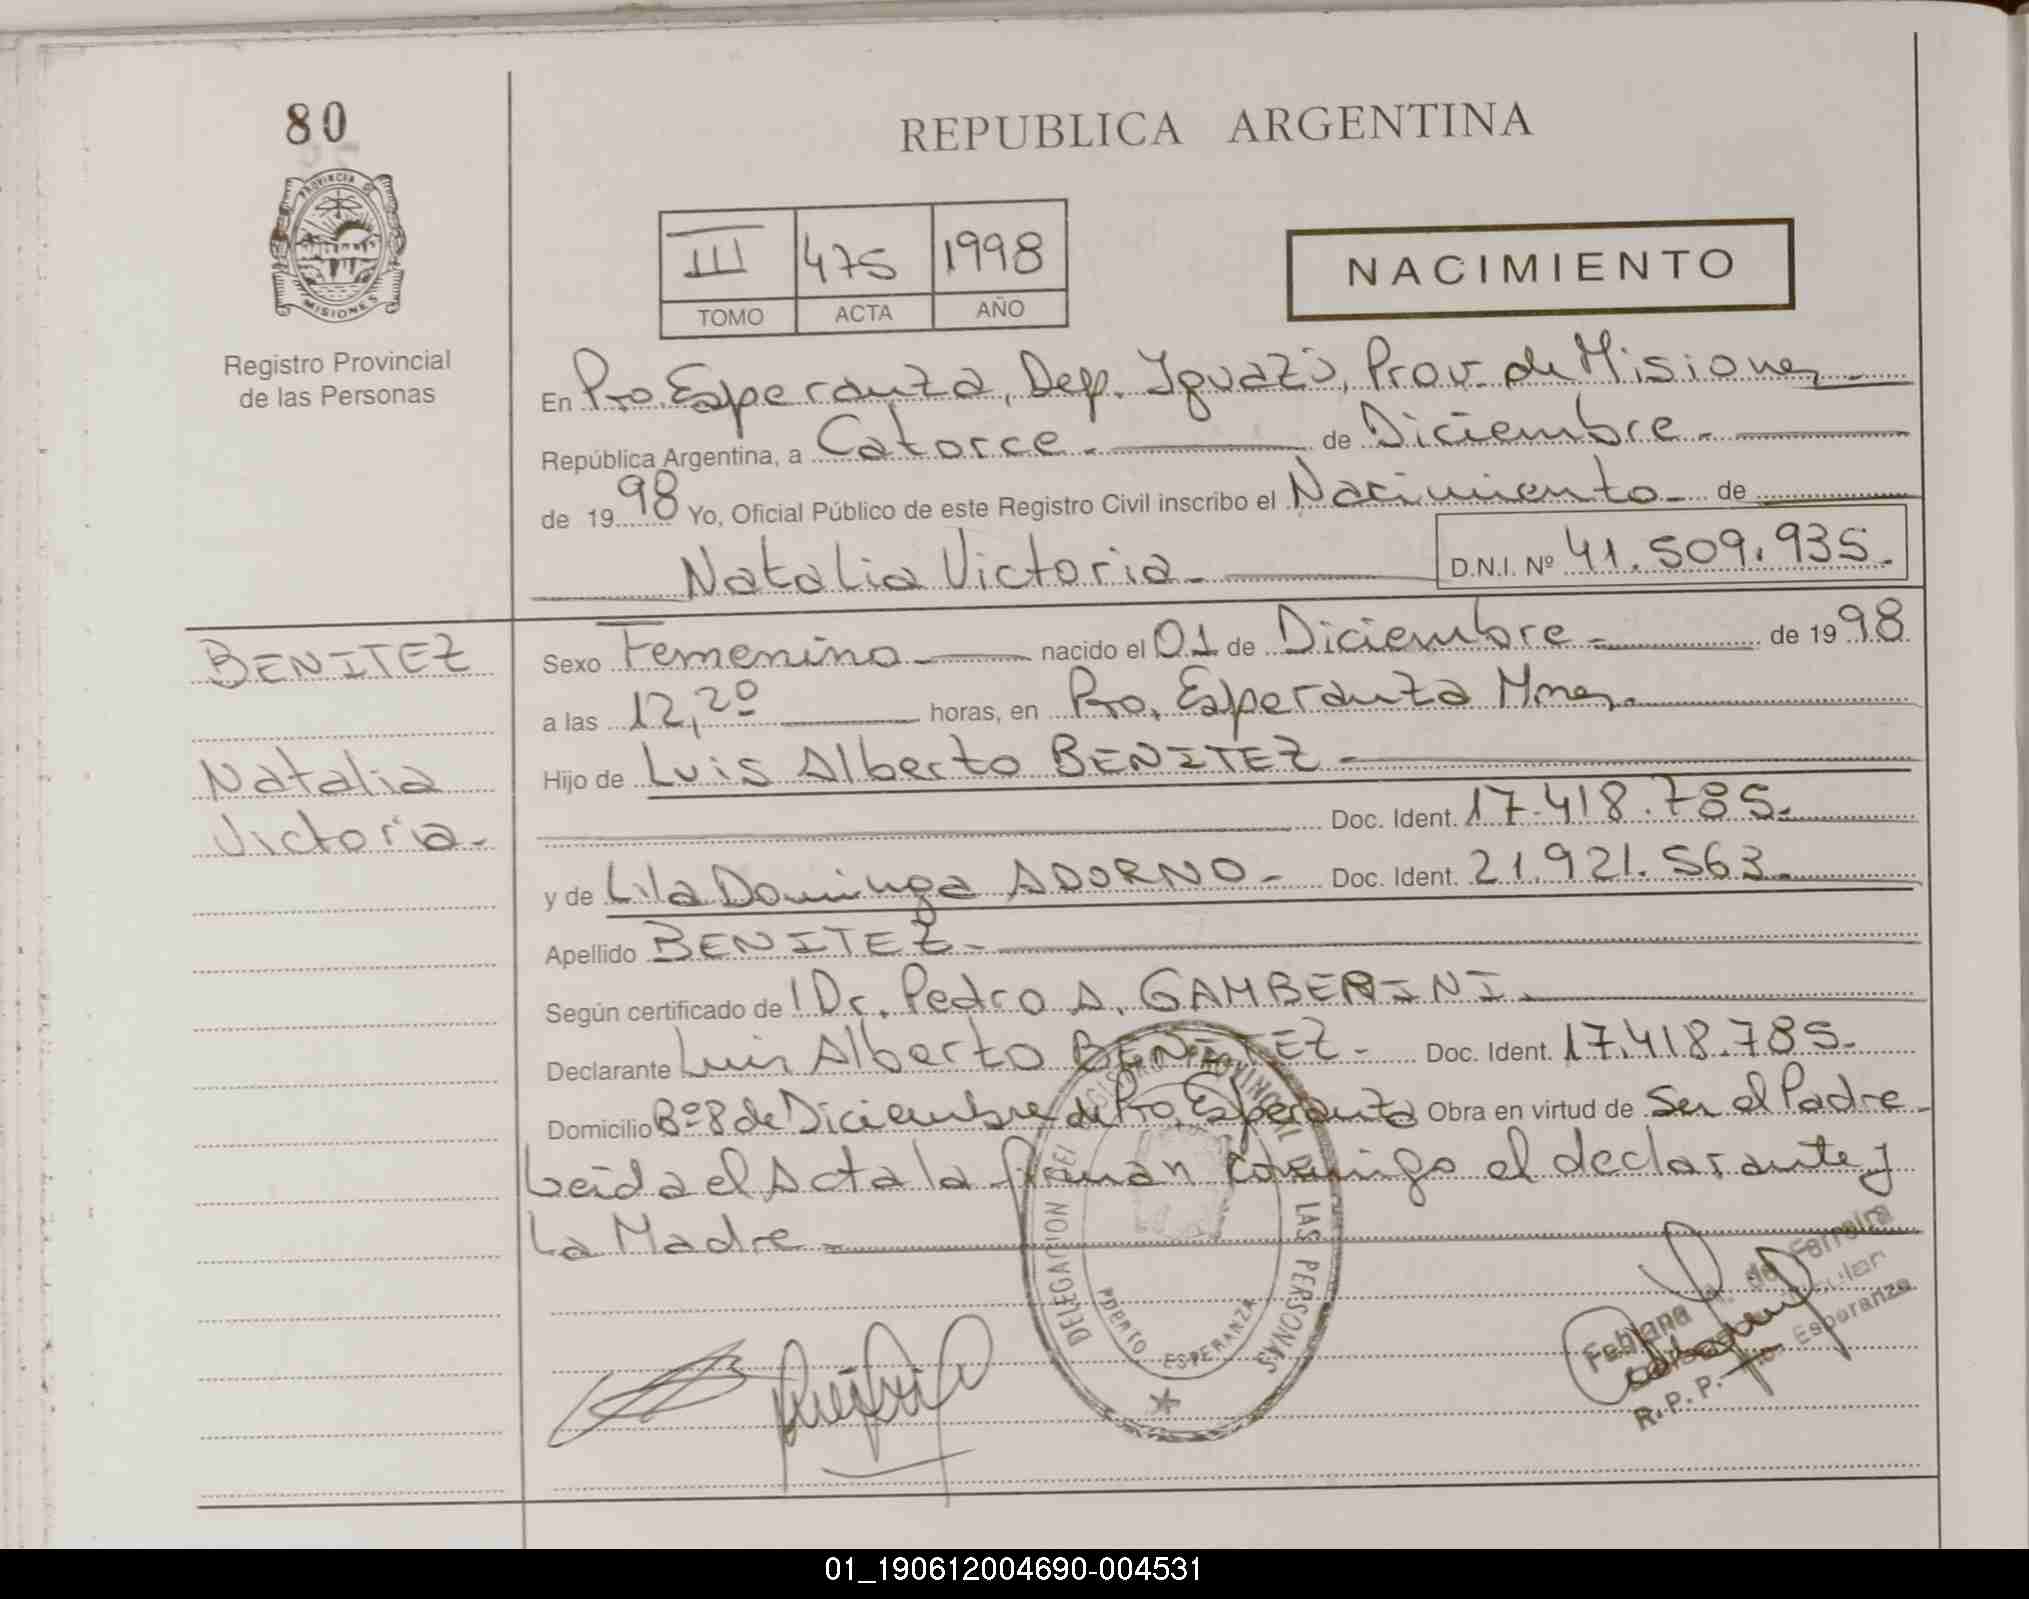 80
REPUBLICA ARGENTINA
PROVINCIA DE
MISIONES
Registro Provincial
de las Personas
III 475 1998
TOMO ACTA AÑO
NACIMIENTO
En Pto. Esperanza, Dep. Iguazú, Prov. de Misiones
República Argentina, a Catorce.- de Diciembre.-
de 1998 Yo, Oficial Público de este Registro Civil inscribo el Nacimiento de
Natalia Victoria.-
D.N.I. Nº 41.509.935.
BENITEZ
Natalia
Victoria.-
Sexo Femenino nacido el 01 de Diciembre.- de 1998
a las 12,20 horas, en Pto. Esperanza Mnes.
Hijo de Luis Alberto BENITEZ
Doc. Ident. 17.418.785.
y de Lila Dominga ADORNO.- Doc. Ident. 21.921.563.
Apellido BENITEZ.-
Según certificado de l Dr. Pedro A. GAMBERINI.
Declarante Luis Alberto BENITEZ.- Doc. Ident. 17.418.785.
Domicilio Bº 8 de Diciembre de Pto. Esperanza Obra en virtud de Ser el Padre
Leida el Acta la firman conmigo el declarante y
La Madre.-
DELEGACION DEL REGISTRO PROVINCIAL DE LAS PERSONAS
PUERTO ESPERANZA
Fabiana de Ferreira
R.P.P. Esperanza
01_190612004690-004531